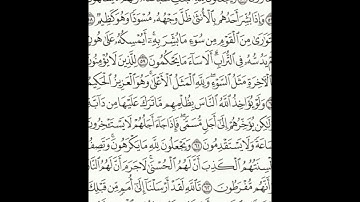 وَإِذَا بُشِّرَ أَحَدُهُم بِٱلْأُنثَىٰ ظَلَّ وَجْهُهُۥ مُسْوَدًّا وَهُوَ كَظِيمٌ
مِنَ ٱلْقَوْمِ مِن سُوٓءِ مَا بُشِّرَ بِهِۦٓ ۚ أَيُمْسِكُهُۥ عَلَىٰ هُونٍ
يَدُسُّهُۥ فِي ٱلتُّرَابِ ۗ أَلَا سَآءَ مَا يَحْكُمُونَ ٥٩ لِلَّذِينَ لَا يُؤْمِنُونَ
ٱلْأٓخِرَةِ مَثَلُ ٱلسَّوْءِ ۖ وَلِلَّهِ ٱلْمَثَلُ ٱلْأَعْلَىٰ ۚ وَهُوَ ٱلْعَزِيزُ ٱلْحَكِيمُ
وَلَوْ يُؤَاخِذُ ٱللَّهُ ٱلنَّاسَ بِظُلْمِهِم مَّا تَرَكَ عَلَيْهَا مِن دَآبَّةٍ
لَٰكِن يُؤَخِّرُهُمْ إِلَىٰٓ أَجَلٍ مُّسَمًّى ۖ فَإِذَا جَآءَ أَجَلُهُمْ لَا يَسْتَـْٔخِرُونَ
سَاعَةً ۖ وَلَا يَسْتَقْدِمُونَ ٦١ وَيَجْعَلُونَ لِلَّهِ مَا يَكْرَهُونَ ۚ وَتَصِفُ
لْسِنَتُهُمُ ٱلْكَذِبَ أَنَّ لَهُمُ ٱلْحُسْنَىٰ ۖ لَا جَرَمَ أَنَّ لَهُمُ ٱلنَّارَ
أَنَّهُم مُّفْرَطُونَ ٦٢ تَٱللَّهِ لَقَدْ أَرْسَلْنَآ إِلَىٰٓ أُمَمٍ مِّن قَبْلِكَ